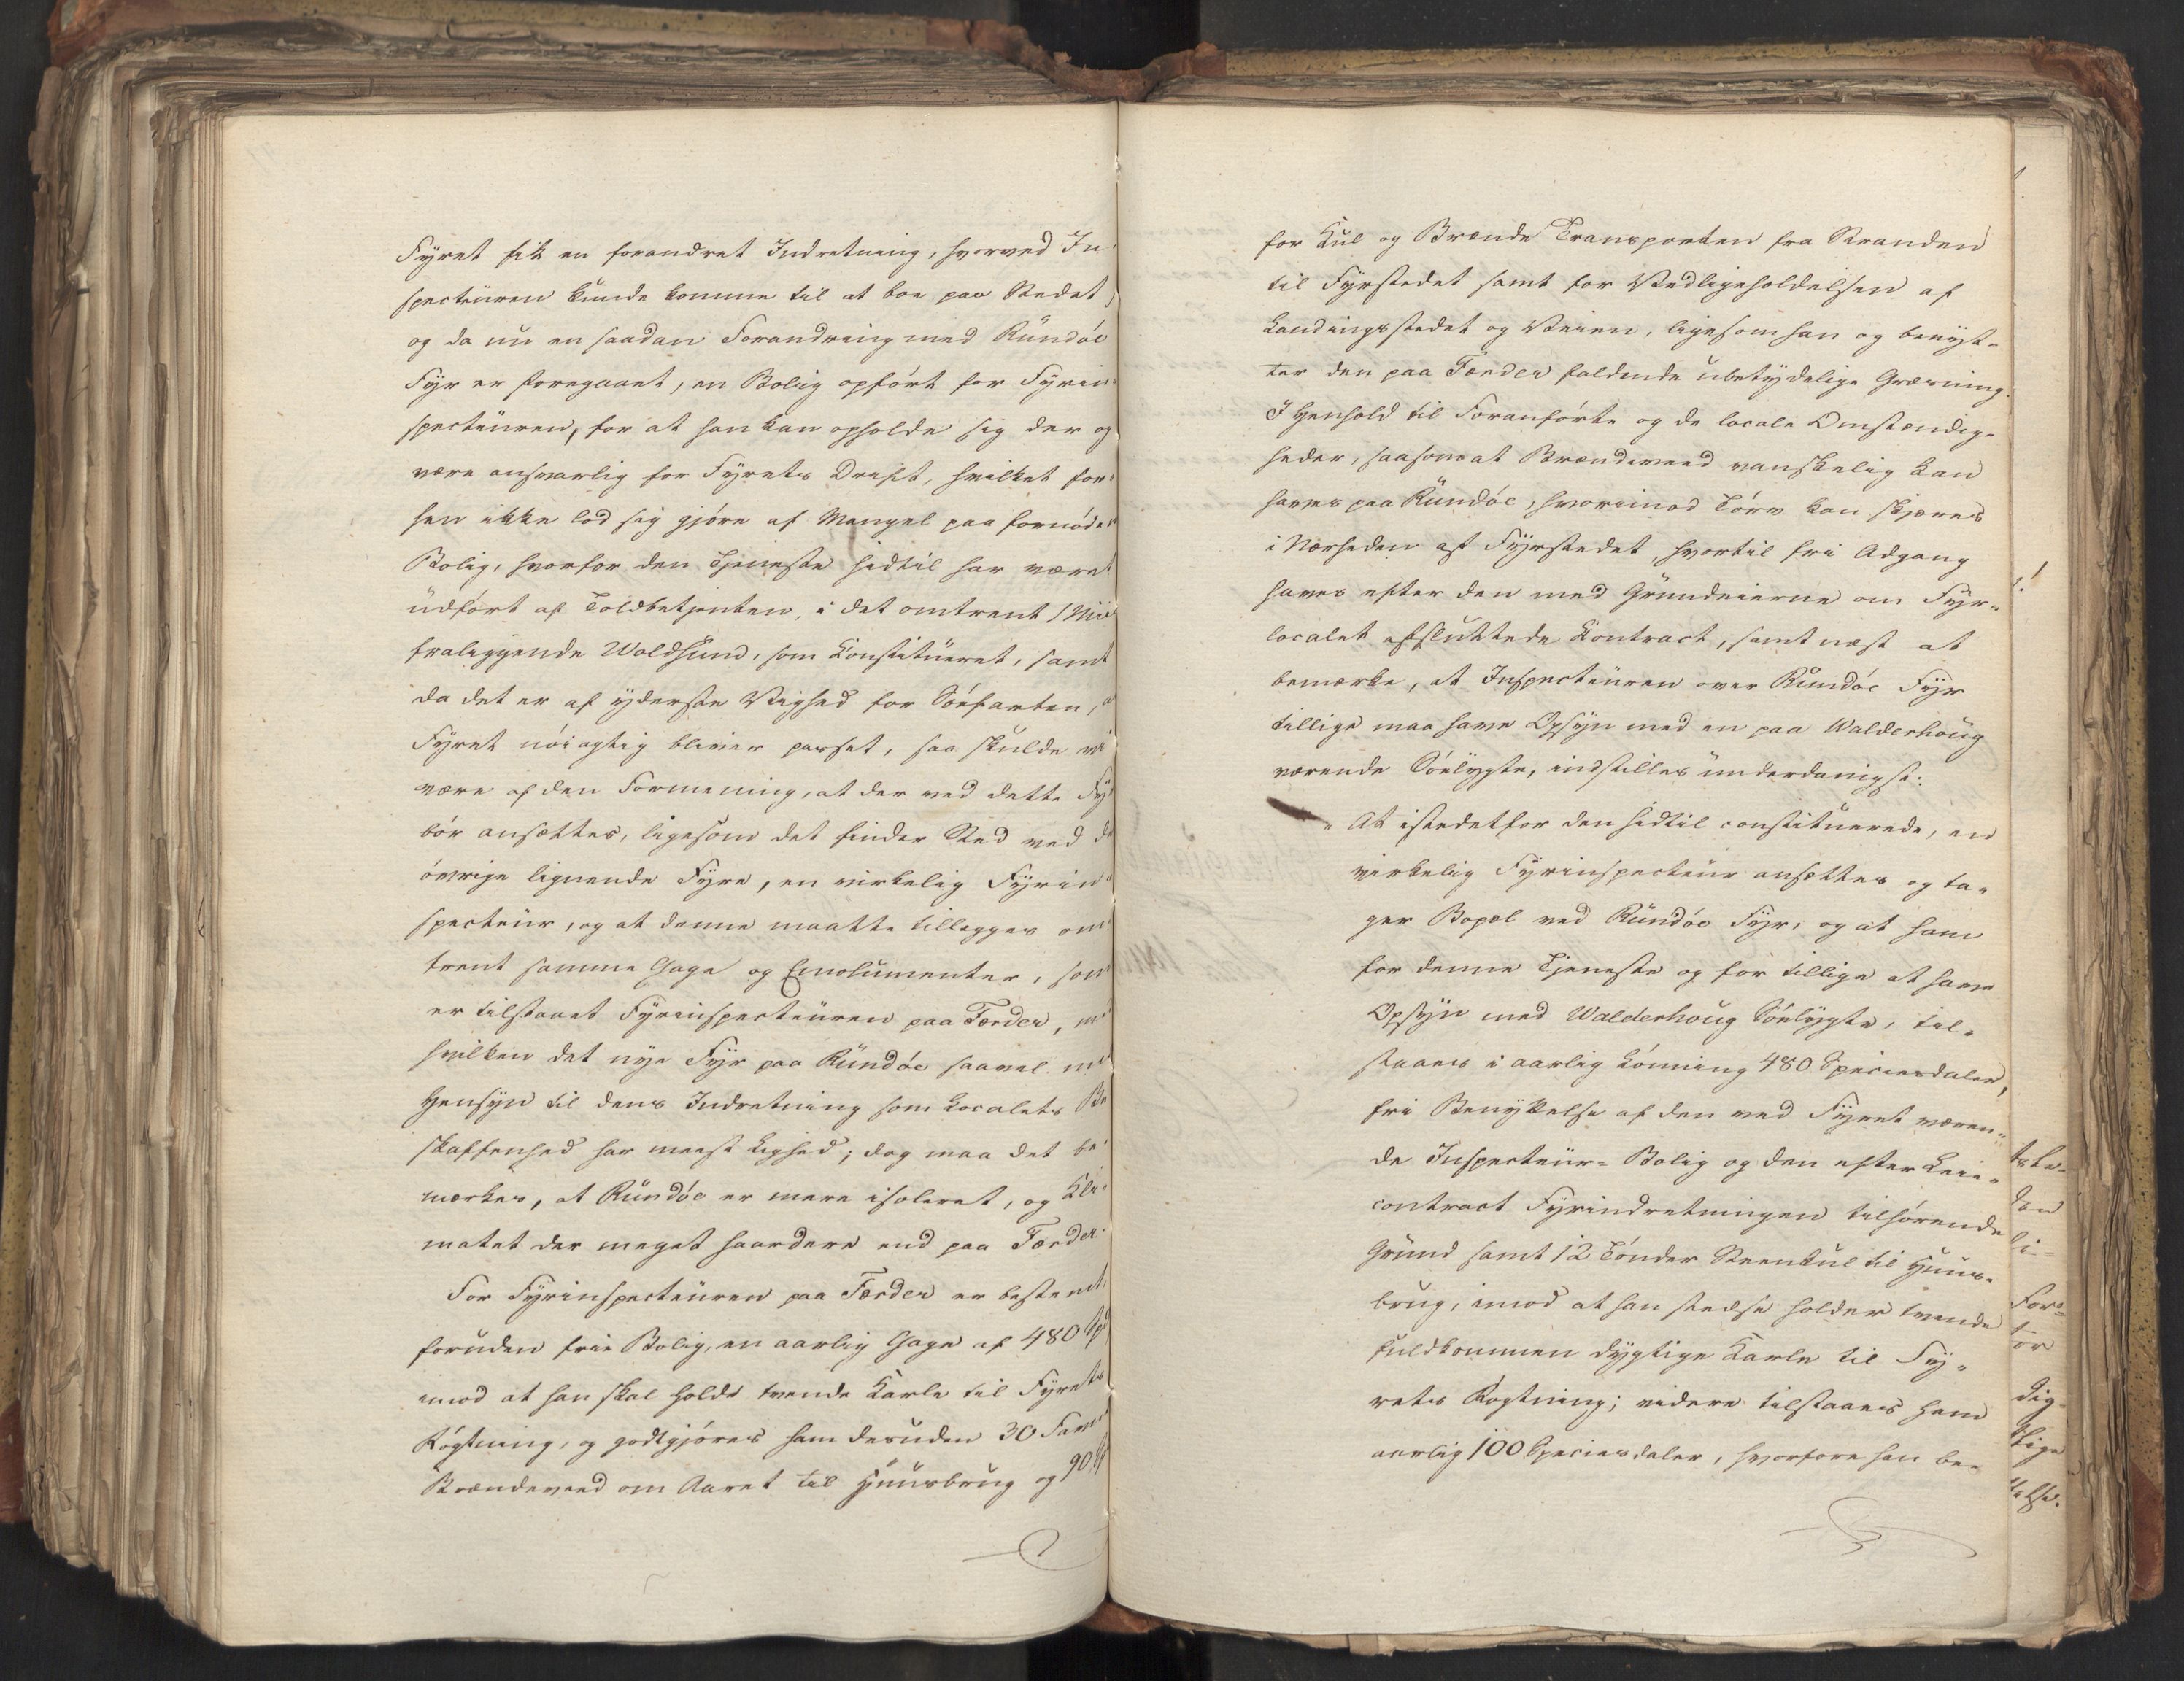 Fyret fik en forandret Indretning, hvorved In-
specteuren kunde komme til at boe paa Stedet,
og da nu en saadan Forandring med Rundöe
Fyr er foregaaet, en Bolig opfört for Fyrin-
specteuren, for at han kan opholde sig der og
være ansvarlig for Fyrets Drift, hvilket for-
hen ikke lod sig gjöre af Mangel paa fornöden
Bolig, hvorfor den Tjeneste hidtil har været
udfört af Toldbetjenten, i det omtrent 1 Miil
fraliggende Woldsund, som Konstitueret, samt
da det er af yderste Vigtighed for Söefarten, at
Fyret nöiagtig bliver passet, saa skulde vi
være af den Formening, at der ved dette Fyr
bör ansættes, ligesom det finder Sted ved de
övrige lignende Fyre, en virkelig Fyrin-
specteur, og at denne maatte tillægges om-
trent samme Gage og Emolumenter, som
er tilstaaet Fyrinspecteuren paa Færder, med
hvilken det nye Fyr paa Rundöe saavel med
Hensyn til dens Indretning som Localets Be-
skaffenhed har meest Lighed; dog maa det be-
mærkes, at Rundöe er mere isoleret, og Kli-
matet der meget haardere end paa Færder.
For Fyrinspecteuren paa Færder er bestemt
foruden frie Bolig, en aarlig Gage af 480 Spd
imod at han skal holde tvende Karle til Fyrets
Rögtning, og godtgjöres ham desuden 30 Favne
Brændeveed om Aaret til Huusbrug og 90
for Kul og Brænde Transporten fra Stranden
til Fyrstedet samt for Vedligeholdelsen af
Landingsstedet og Veien, ligesom han og benyt-
ter den paa Færder faldende ubetydelige Græsning.
I Henhold til Foranförte og de locale Omstændig-
heder, saasom at Brændeveed vanskelig kan
haves paa Rundöe, hvorimod Törv kan skjæres
i Nærheden af Fyrstedet, hvortil fri Adgang
haves efter den med Grundeierne om Fyr-
localet afsluttede Kontract, samt næst at
bemærke, at Inspecteuren over Rundöe Fyr
tillige maa have Opsyn med en paa Walderhoug
værende Söelygte, indstilles underdanigst:
"At istedetfor den hidtil constituerede, en
virkelig Fyrinspecteur ansættes og ta-
ger Bopæl ved Rundöe Fyr, og at ham
for denne Tjeneste og for tillige at have
Opsyn med Walderhoug Söelygte, til-
staaes i aarlig Lönning 480 Speciesdaler,
fri Benyttelse af den ved Fyret væren-
de Inspecteur-Bolig og den efter Leie-
contract Fyrindretningen tilhörende
Grund samt 12 Tönder Steenkul til Huus-
brug, imod at han stedse holder tvende
fuldkommen dygtige Karle til Fy-
rets Rögtning; videre tilstaaes ham
aarlig 100 Speciesdaler, hvorfore han be-